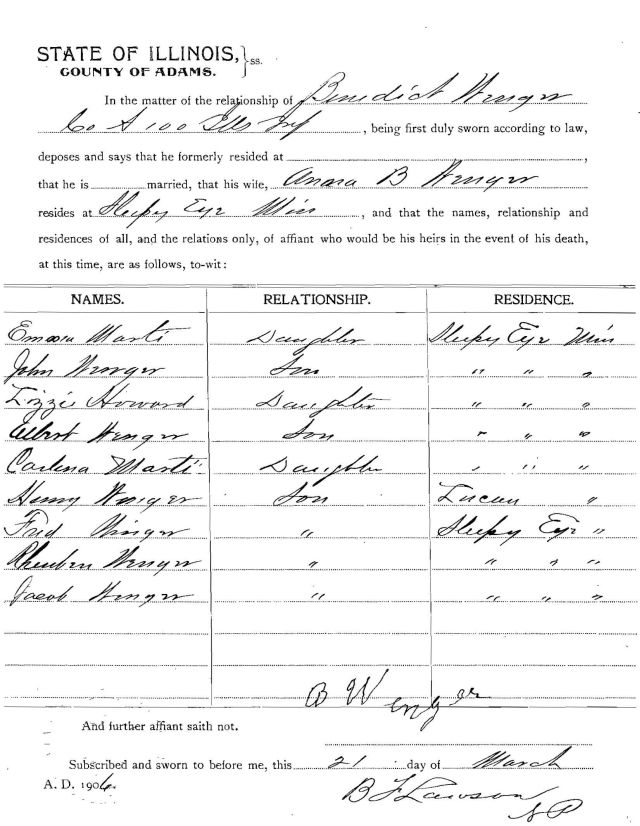 STATE OF ILLINOIS, } ss.
COUNTY OF ADAMS.
In the matter of the relationship of Benedict Wenger
Co A 100 Ills Inf, being first duly sworn according to law,
deposes and says that he formerly resided at
that he is married, that his wife, Anna B Wenger
resides at Sleepy Eye Min, and that the names, relationship and
residences of all, and the relations only, of affiant who would be his heirs in the event of his death,
at this time, are as follows, to-wit:
NAMES. RELATIONSHIP. RESIDENCE.
Emma Marti Daughter Sleepy Eye Min
John Wenger Son " " "
Lizzie Howard Daughter " " "
Albert Wenger Son " " "
Carlena Marti Daughter " " "
Henry Wenger Son "
Fred Wenger " Sleepy Eye "
Rheuben Wenger " " " "
Jacob Wenger " " " "
B Wenger
And further affiant saith not.
Subscribed and sworn to before me, this 21 day of March
A. D. 1906. B F Lawson